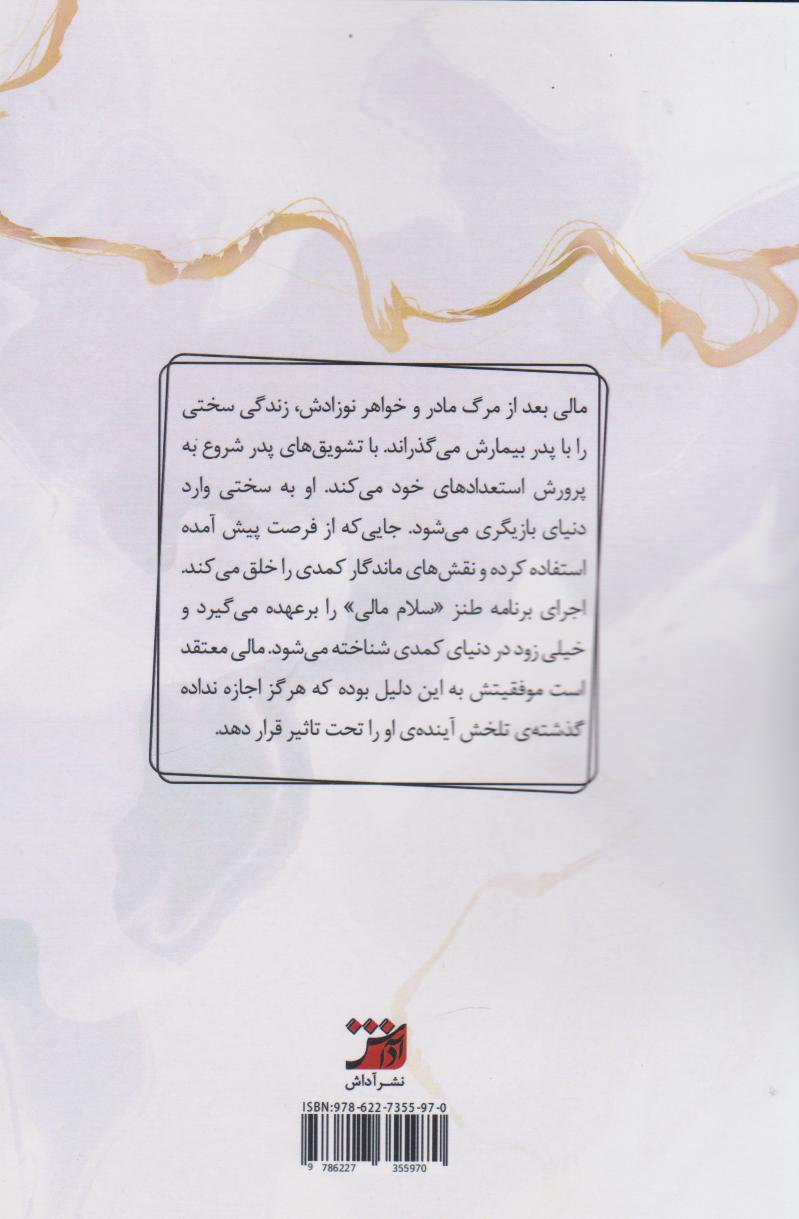 مالی بعد از مرگ مادر و خواهر نوزادش، زندگی سختی
را با پدر بیمارش می‌گذراند. با تشویق‌های پدر شروع به
پرورش استعدادهای خود می‌کند. او به سختی وارد
دنیای بازیگری می‌شود. جایی‌که از فرصت پیش آمده
استفاده کرده و نقش‌های ماندگار کمدی را خلق می‌کند.
اجرای برنامه طنز «سلام مالی» را برعهده می‌گیرد و
خیلی زود در دنیای کمدی شناخته می‌شود. مالی معتقد
است موفقیتش به این دلیل بوده که هرگز اجازه نداده
گذشته‌ی تلخش آینده‌ی او را تحت تاثیر قرار دهد.
آداش
نشر آداش
ISBN:978-622-7355-97-0
9 786227 355970